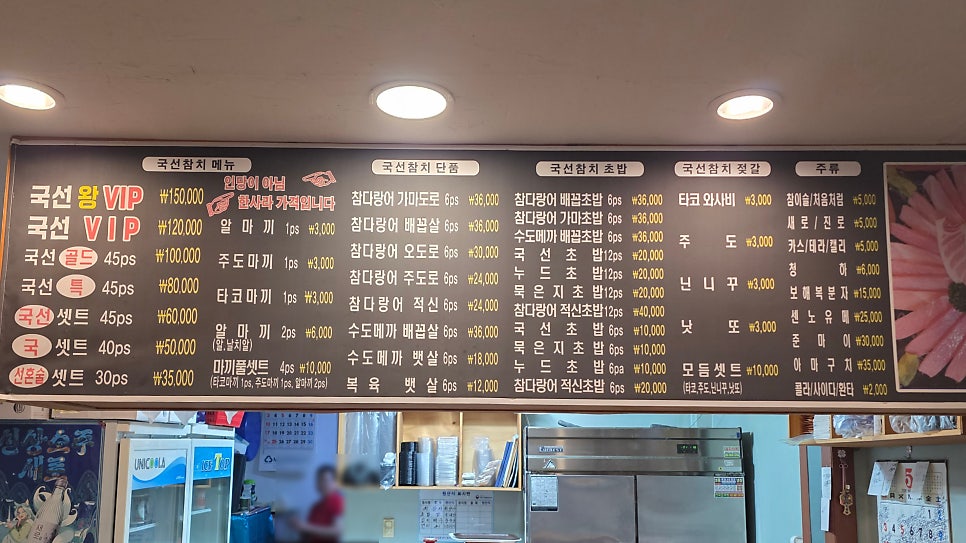 국선참치 메뉴
국선 왕 VIP ₩150,000
국선 VIP ₩120,000
국선 골드 45ps ₩100,000
국선 특 45ps ₩80,000
국선 셋트 45ps ₩60,000
국 셋트 40ps ₩50,000
선혼술 셋트 30ps ₩35,000
인당이 아님
한사라 가격입니다
알마끼 1ps ₩3,000
주도마끼 1ps ₩3,000
타코마끼 1ps ₩3,000
알마끼 2ps ₩6,000
(알,날치알)
마끼풀셋트 4ps ₩10,000
(타코마끼 1ps, 주도마끼 1ps, 알마끼 2ps)
국선참치 단품
참다랑어 가마도로 6ps ₩36,000
참다랑어 배꼽살 6ps ₩36,000
참다랑어 오도로 6ps ₩30,000
참다랑어 주도로 6ps ₩24,000
참다랑어 적신 6ps ₩24,000
수도메까 배꼽살 6ps ₩36,000
수도메까 뱃살 6ps ₩18,000
복육 뱃살 6ps ₩12,000
국선참치 초밥
참다랑어 배꼽초밥 6ps ₩36,000
참다랑어 가마초밥 6ps ₩36,000
수도메까 배꼽초밥 6ps ₩36,000
국선초밥 12ps ₩20,000
누드초밥 12ps ₩20,000
묵은지초밥 12ps ₩20,000
참다랑어 적신초밥 12ps ₩40,000
국선초밥 6ps ₩10,000
묵은지초밥 6ps ₩10,000
누드초밥 6pa ₩10,000
참다랑어 적신초밥 6ps ₩20,000
국선참치 젓갈
타코 와사비 ₩3,000
주도 ₩3,000
닌니꾸 ₩3,000
낫또 ₩3,000
모듬셋트 ₩10,000
(타코,주도,닌니꾸,낫또)
주류
참이슬/처음처럼 ₩5,000
새로/진로 ₩5,000
카스/테라/켈리 ₩5,000
청하 ₩6,000
보해복분자 ₩15,000
센노유메 ₩25,000
준마이 ₩30,000
아마구치 ₩35,000
콜라/사이다/환타 ₩2,000
UNICOOLA
ICE TOP
5